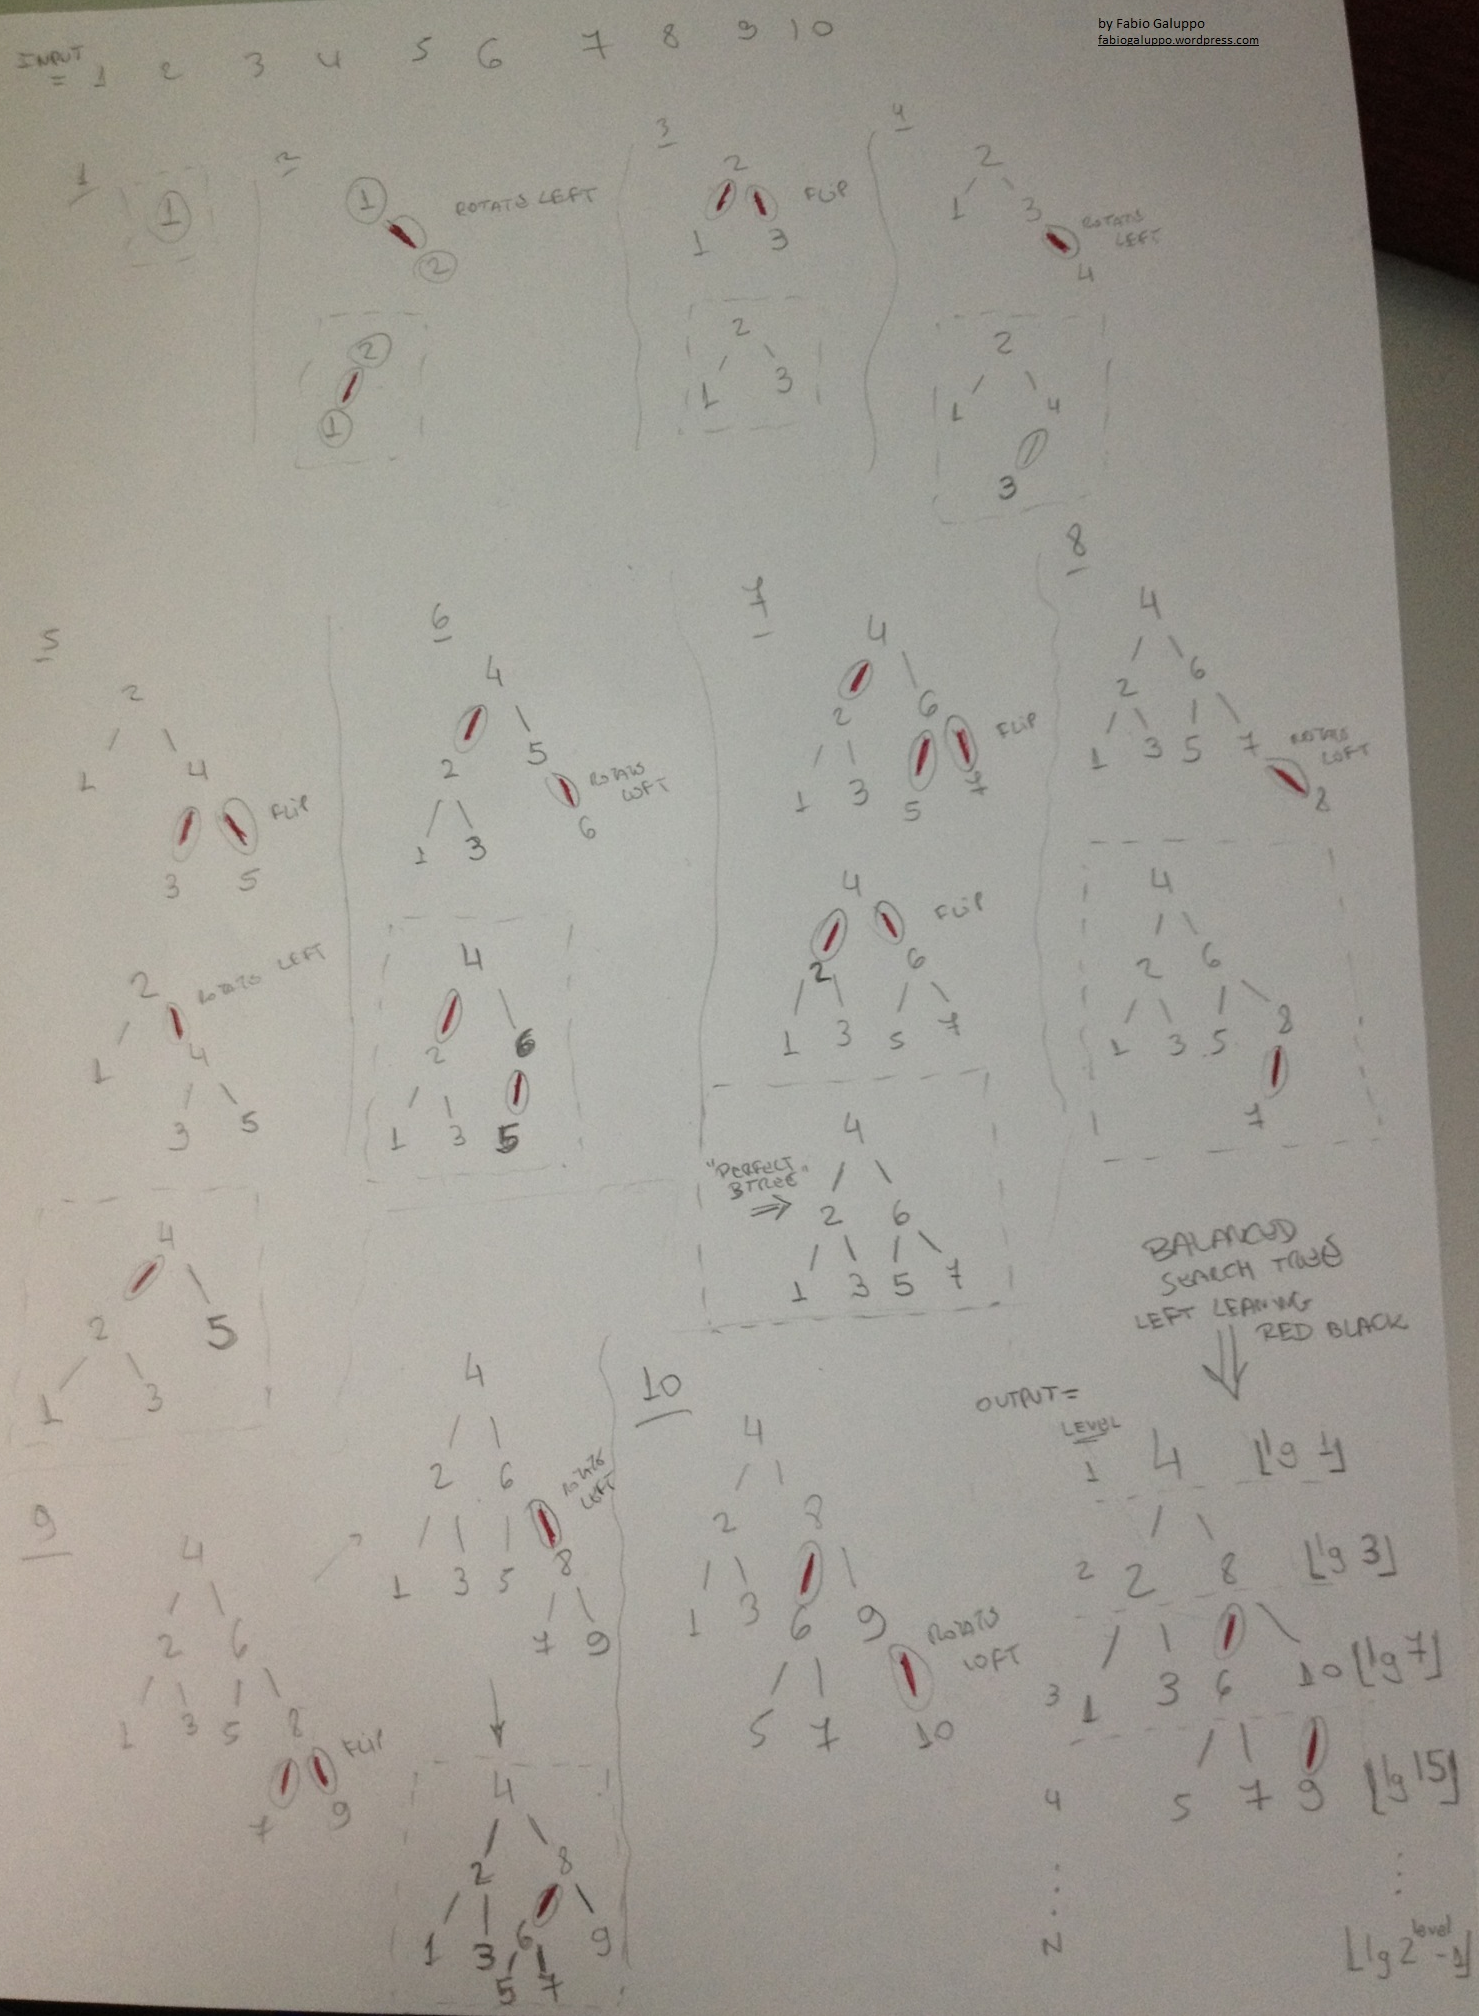 by Fabio Galuppo
fabiogaluppo.wordpress.com
INPUT
= 1 2 3 4 5 6 7 8 9 10
1
1
2
1
ROTATE LEFT
2
2
1
3
2
FLIP
1 3
2
1 3
4
2
1 3
ROTATE
LEFT
4
2
1 4
3
5
2
1 4
FLIP
3 5
2
ROTATE LEFT
1 4
3 5
4
2 5
1 3
6
4
2 5
ROTATE
LEFT
1 3 6
4
2 6
1 3 5
7
4
2 6
FLIP
1 3 5 7
4
FLIP
2 6
1 3 5 7
"PERFECT
BTREE"
⇒
4
2 6
1 3 5 7
8
4
2 6
1 3 5 7
ROTATE
LEFT
8
4
2 6
1 3 5 8
7
9
4
2 6
1 3 5 8
FLIP
7 9
4
2 6
ROTATE
LEFT
1 3 5 8
7 9
4
2 8
1 3 6 9
5 7
10
4
2 8
1 3 6 9
ROTATE
LEFT
5 7 10
BALANCED
SEARCH TREE
LEFT LEANING
RED BLACK
OUTPUT=
LEVEL
1 4 ⌊lg 1⌋
2 2 8 ⌊lg 3⌋
3 1 3 6 10 ⌊lg 7⌋
4 5 7 9 ⌊lg 15⌋
N ⌊lg 2^level -1⌋